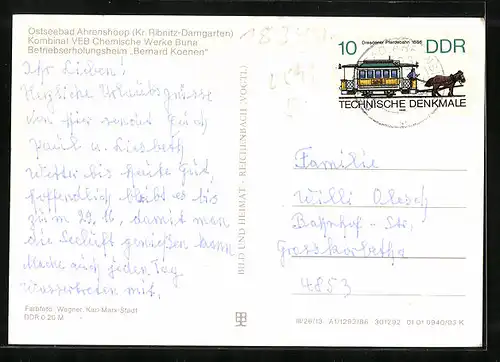 Ostseebad Ahrenshoop (Kr. Ribnitz-Damgarten)
Kombinat VEB Chemische Werke Buna
Betriebserholungsheim „Bernard Koenen“
Ihr Lieben!
Herzliche Urlaubsgrüsse
von hier sendet Euch
Paul u. Liesbeth
Wetter bis heute Gut,
hoffentlich bleibt es bis
zum 22.16, damit man
die Seeluft genießen kann
Mache auch jeden Tag
Wassertreten mit.
Farbfoto: Wagner, Karl-Marx-Stadt
DDR 0,25 M
BILD UND HEIMAT · REICHENBACH (VOGTL)
Dresdner Pferdebahn 1886
10 DDR
TECHNISCHE DENKMALE
Familie
Willi
Bahnhof - Str.
Grosskorbetha
4853
III/26/13 A1/1293/86 301292 01 01 0940/03 K